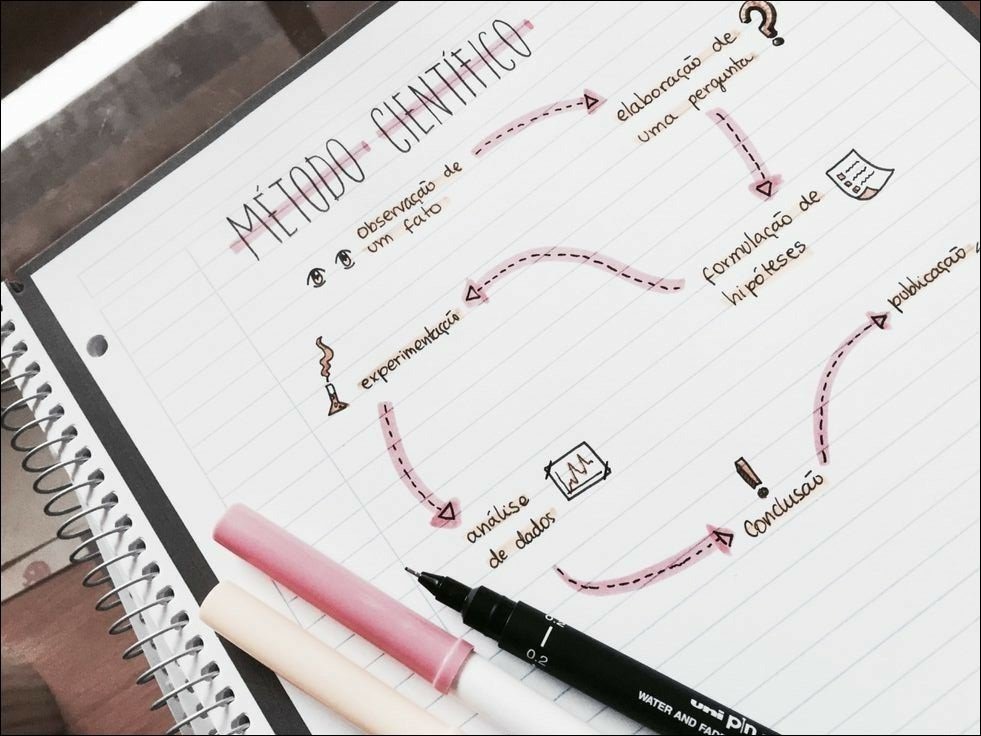 MÉTODO CIENTÍFICO
observação de
um fato
elaboração de
uma pergunta
?
formulação de
hipóteses
experimentação
análise
de dados
!
Conclusão
publicação
0.2
0.2
uni pin
WATER AND FADE